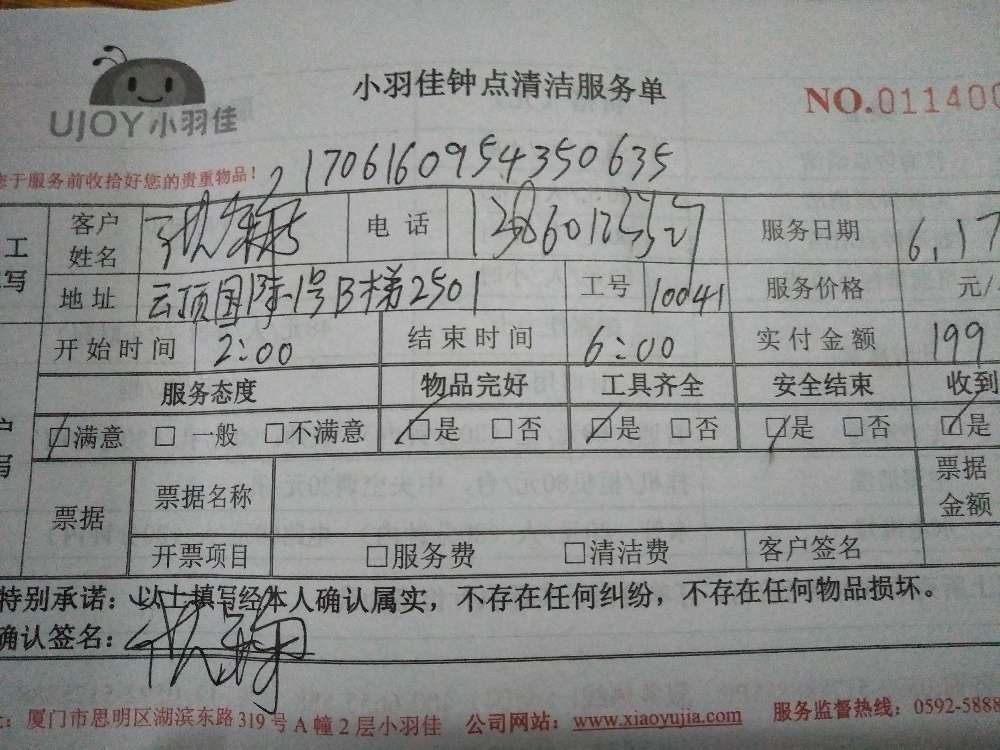 UJOY小羽佳
小羽佳钟点清洁服务单
NO.011400
于服务前收拾好您的贵重物品!
170616095435063 5
工 客户姓名 电话 服务日期 6.17
写 地址 云顶国际1号B梯2501 工号 10041 服务价格 元/
开始时间 2:00 结束时间 6:00 实付金额 199
服务态度 物品完好 工具齐全 安全结束 收到
□满意 □一般 □不满意 □是 □否 □是 □否 □是 □否 □是
票据 票据名称 票据金额
开票项目 □服务费 □清洁费 客户签名
特别承诺:以上填写经本人确认属实,不存在任何纠纷,不存在任何物品损坏。
确认签名:
厦门市思明区湖滨东路319号A幢2层小羽佳 公司网站:www.xiaoyujia.com 服务监督热线:0592-5888